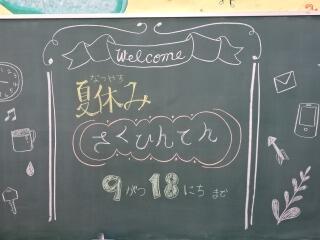 Welcome
なつやす
夏休み
さくひんてん
9がつ18にちまで